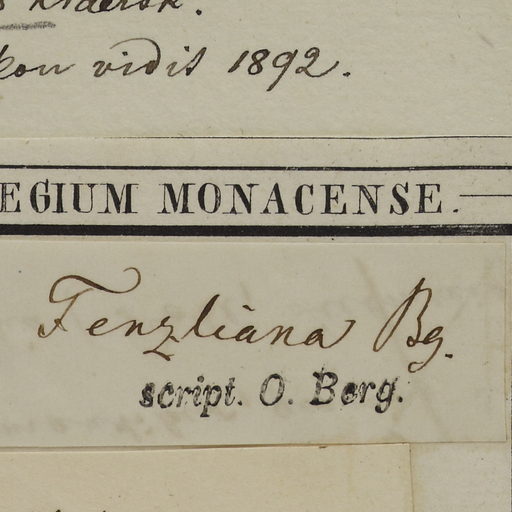 vidit 1892.
EGIUM MONACENSE.
Fenzliana Bg.
script. O. Berg.